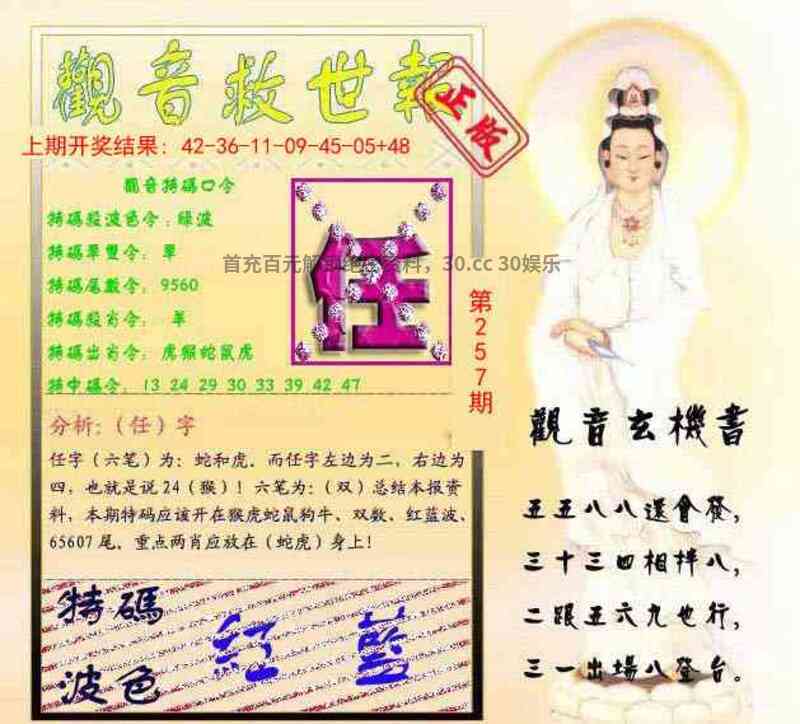 觀音救世報
正版
上期开奖结果：42-36-11-09-45-05+48
觀音特碼口令
特碼殺波色令：绿波
特碼單雙令： 單
特碼尾數令：9560
特碼殺肖令： 羊
特碼出肖令：虎猴蛇鼠虎
特中碼令：13 24 29 30 33 39 42 47
任
首充百元解 绝 料，30.cc 30娱乐
第257期
分析:（任）字
任字（六笔）为：蛇和虎．而任字左边为二，右边为
四，也就是说24（猴）！六笔为:（双）总结本报资
料，本期特码应该开在猴虎蛇鼠狗牛、双数、红蓝波、
65607尾．重点两肖应放在（蛇虎）身上!
特碼
波色
紅 藍
觀音玄機書
五五八八還會發，
三十三四相拌八，
二跟五六九也行，
三一出場八登台。